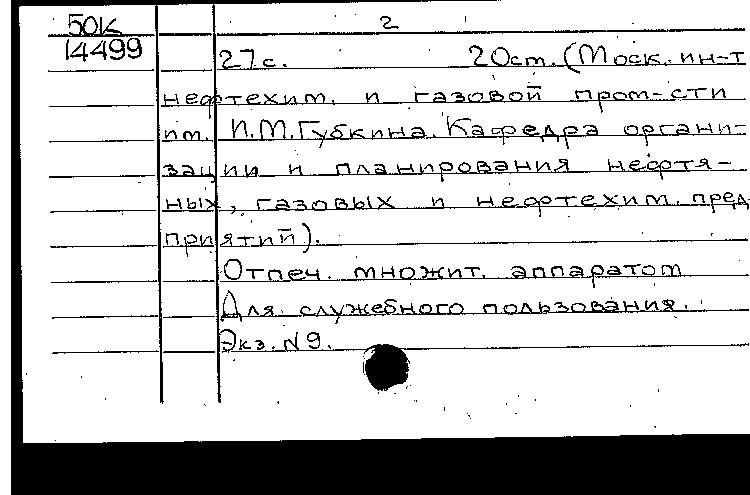 50к 2
14499 27с. 20см. (Моск. ин-т
нефтехим. и газовой пром-сти
им. И.М.Губкина. Кафедра органи-
зации и планирования нефтя-
ных, газовых и нефтехим. пред
приятий).
Отпеч. множит. аппаратом
Для служебного пользования.
Экз. N9.